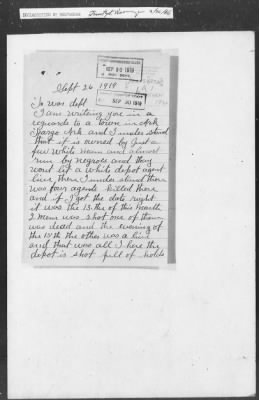 DECLASSIFIED BY
SEP 30 1919
SEP 30 1919
Sept 26 1919
To war dept
I am writing you in a
regards to a town in Ark
Ark and I under stand
that it is owned by Just a
few White man and almost
run by negroes and they
wont let a white depot agent
live there I under stand there
was four agents killed there
and if I got the date right
it was the 13 the of this month
2 men was shot one of them
was dead and the evening of
the the other was a live
and that was all I here the
depot is shot full of holds